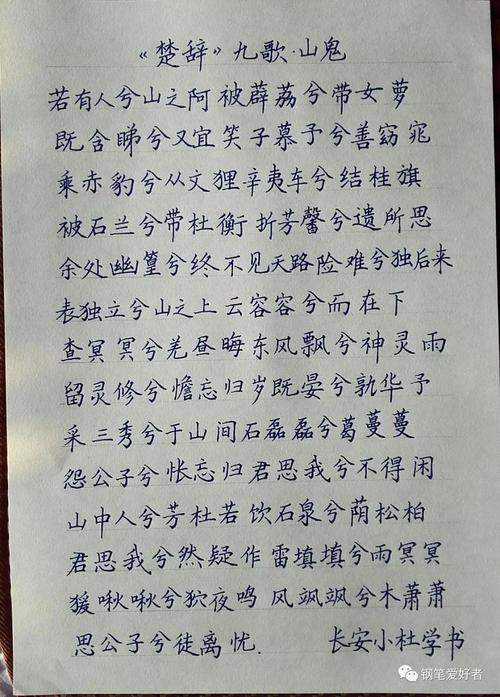 《楚辞》九歌·山鬼
若有人兮山之阿 被薜荔兮带女萝
既含睇兮又宜笑子慕予兮善窈窕
乘赤豹兮从文狸辛夷车兮结桂旗
被石兰兮带杜衡 折芳馨兮遗所思
余处幽篁兮终不见天路险难兮独后来
表独立兮山之上 云容容兮而在下
查冥冥兮羌昼晦东风飘兮神灵雨
留灵修兮憺忘归岁既晏兮孰华予
采三秀兮于山间石磊磊兮葛蔓蔓
怨公子兮怅忘归君思我兮不得闲
山中人兮芳杜若 饮石泉兮荫松柏
君思我兮然疑作雷填填兮雨冥冥
猨啾啾兮狖夜鸣 风飒飒兮木萧萧
思公子兮徒离忧. 长安小杜学书
钢笔爱好者